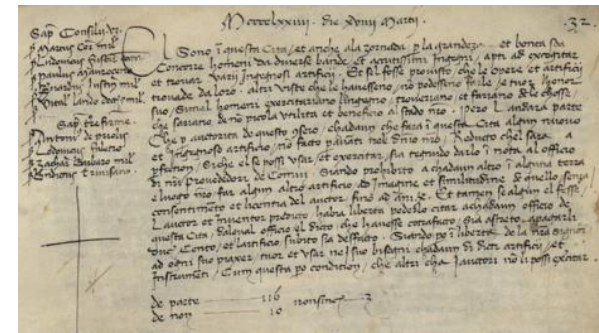 Mcccclxxiiij. die xviiij Martij.
32.
Sapˢ Consilij
ꝑ Marcus Cor mil
ꝑ Ludovicus
ꝑ paulus Maurocenᵒ
ꝑ Bernardus Iustiᵒ mil
ꝑ Vital lando
Sapˢ tre firme
ꝑ Antonius de priolis
ꝑ Ludovicus
ꝑ Zacharˢ Barbaro mil
ꝑ Trivisano
El Sono ĩ questa Cita, et anche ala zornada, ꝑ la grandeza, et bonta soa
Concorre homeni da diverse bande, et acutissimi Ingegni, apti ad excogitar
et trovar Varij Ingegnosi artificij. Et sel fosse provisto, che le opere et artificij
trovade da loro, altri Viste che le havesseno, nõ podesseno farle, e tuor lhonor
suo, Simel homeni exercitariano lingegno, troveriano, et fariano dele chosse,
che sariano de nõ picola Utilita et beneficio al stado nr̃o. Pero Landara parte
Che ꝑ auctorita de questo 9seio, chadaun che fara ĩ questa Cita algun nuovo
et Ingegnoso artificio, nõ facto ꝑavãti nel dñio nr̃o, Reducto chel sara a
ꝑfection, Siche el se possi Usar, et exercitar, sia tegnudo darlo ĩ nota al officio
di nr̃i Provededori de Comũ. Siando prohibito a chadaun altro ĩ alguna terra
e luogo nr̃o, far algun altro artificio, ad Imagine et similitudine de quello, senza
consentimẽto et licentia del auctor, fino ad ãni .X. Et tamen se algun el fesse,
Lauctor et Inventor predicto, habia liberta poderlo citar a chadaun officio de
questa Cita, dalqual officio el dicto, che havesse cõtrafacto, sia astreto, a pagarli
duc̃ Cento, et lartificio, subito sia desfacto. Siando po ĩ liberta de la nr̃a Signoria
ad ogni suo piaxer, tuor et Usar ne I suo bisogni chadaun di dicti artificij, et
Instrumẽti, Cum questa ꝑo condition, che altri cha I auctori nõ li possi exercitar.
de parte 116
de non 10
nonsincˢ 3